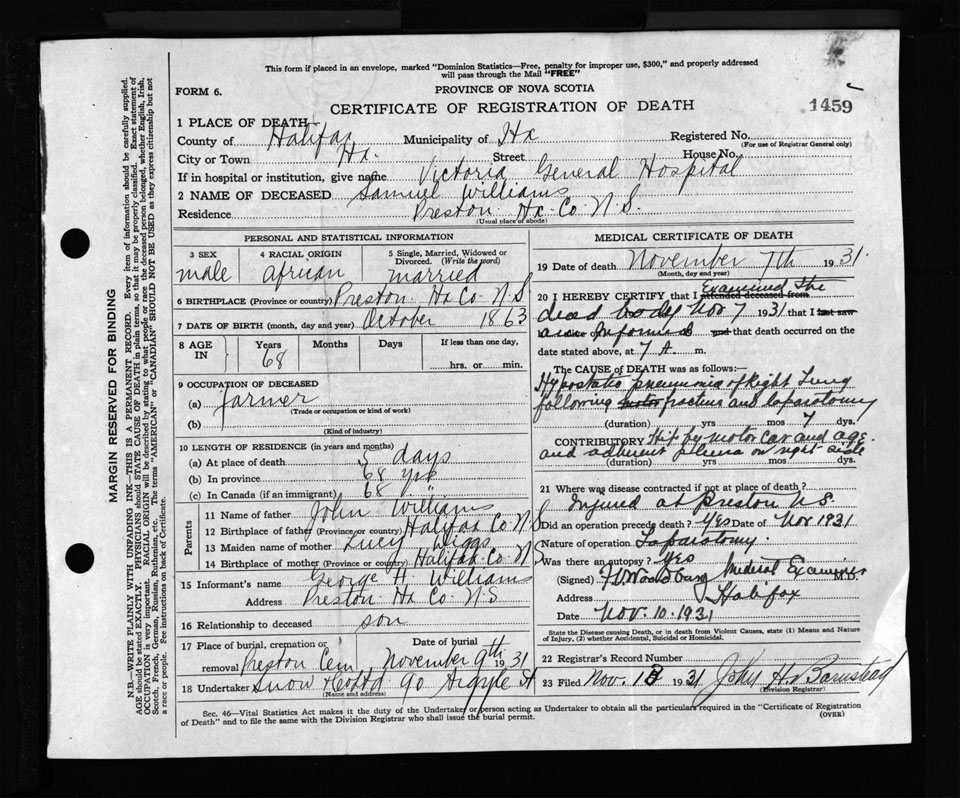 This form if placed in an envelope, marked "Dominion Statistics—Free, penalty for improper use, $300," and properly addressed
will pass through the Mail "FREE"
FORM 6.
PROVINCE OF NOVA SCOTIA
CERTIFICATE OF REGISTRATION OF DEATH
1459
1 PLACE OF DEATH—
County of Halifax Municipality of Hx Registered No.
(For use of Registrar General only)
City or Town Hx. Street House No.
If in hospital or institution, give name Victoria General Hospital
2 NAME OF DECEASED Samuel Williams
Residence Preston Hx. Co. N.S.
(Usual place of abode)
PERSONAL AND STATISTICAL INFORMATION
3 SEX 4 RACIAL ORIGIN 5 Single, Married, Widowed or
Divorced. (Write the word)
male african married
6 BIRTHPLACE (Province or country) Preston Hx Co N S
7 DATE OF BIRTH (month, day and year) October 1863
8 AGE IN Years Months Days If less than one day,
68
hrs. or min.
9 OCCUPATION OF DECEASED
(a) farmer
(Trade or occupation or kind of work)
(b)
(Kind of industry)
10 LENGTH OF RESIDENCE (in years and months)
(a) At place of death days
(b) In province 68 yrs
(c) In Canada (if an immigrant) 68 "
Parents
11 Name of father John Williams
12 Birthplace of father (Province or country) Halifax Co. N S
13 Maiden name of mother Lucy Diggs
14 Birthplace of mother (Province or country) Halifax Co. N S
15 Informant's name George H. Williams
Address Preston Hx Co N.S
16 Relationship to deceased son
17 Place of burial, cremation or Date of burial
removal Preston Cem. November 9th 1931
18 Undertaker Snow & Co Ltd 90 Argyle St
(Name and address)
MEDICAL CERTIFICATE OF DEATH
19 Date of death November 7th 1931.
(Month, day and year)
20 I HEREBY CERTIFY that I attended deceased from Examined the
dead body Nov 7 1931 that I last saw
alive on informed and that death occurred on
date stated above, at 7 A. m.
The CAUSE OF DEATH was as follows:—
Hypostatic pneumonia of Right Lung
following motor fracture and laparotomy
(duration) yrs mos 7 dys.
CONTRIBUTORY Hip by motor car and age.
and adherent pleura on right side
(duration) yrs. mos. dys.
21 Where was disease contracted if not at place of death?
Injured at Preston N.S.
Did an operation precede death? Yes Date of Nov 1931
Nature of operation Laparotomy.
Was there an autopsy? Yes
(Signed) Medical Examiner M.D.
Address Halifax
Date Nov. 10. 1931
State the Disease causing Death, or in death from Violent Causes, state (1) Means and Nature
of Injury, (2) whether Accidental, Suicidal or Homicidal.
22 Registrar's Record Number
23 Filed Nov. 1931 John H. Barnstead
(Division Registrar)
Sec. 46—Vital Statistics Act makes it the duty of the Undertaker or person acting as Undertaker to obtain all the particulars required in the "Certificate of Registration
of Death" and to file the same with the Division Registrar who shall issue the burial permit.
(OVER)
MARGIN RESERVED FOR BINDING
N.B.—WRITE PLAINLY WITH UNFADING INK—THIS IS A PERMANENT RECORD. Every item of information should be carefully supplied.
AGE should be stated EXACTLY. PHYSICIANS should STATE CAUSE OF DEATH in plain terms, so that it may be properly classified. Exact statement of
OCCUPATION is very important. RACIAL ORIGIN will be described by stating to what people or race the deceased person belonged, whether English, Irish,
Scotch, French, German, Russian, Ruthenian, etc. The terms "AMERICAN" or "CANADIAN" SHOULD NOT BE USED as they express citizenship but not
a race or people. See instructions on back of Certificate.